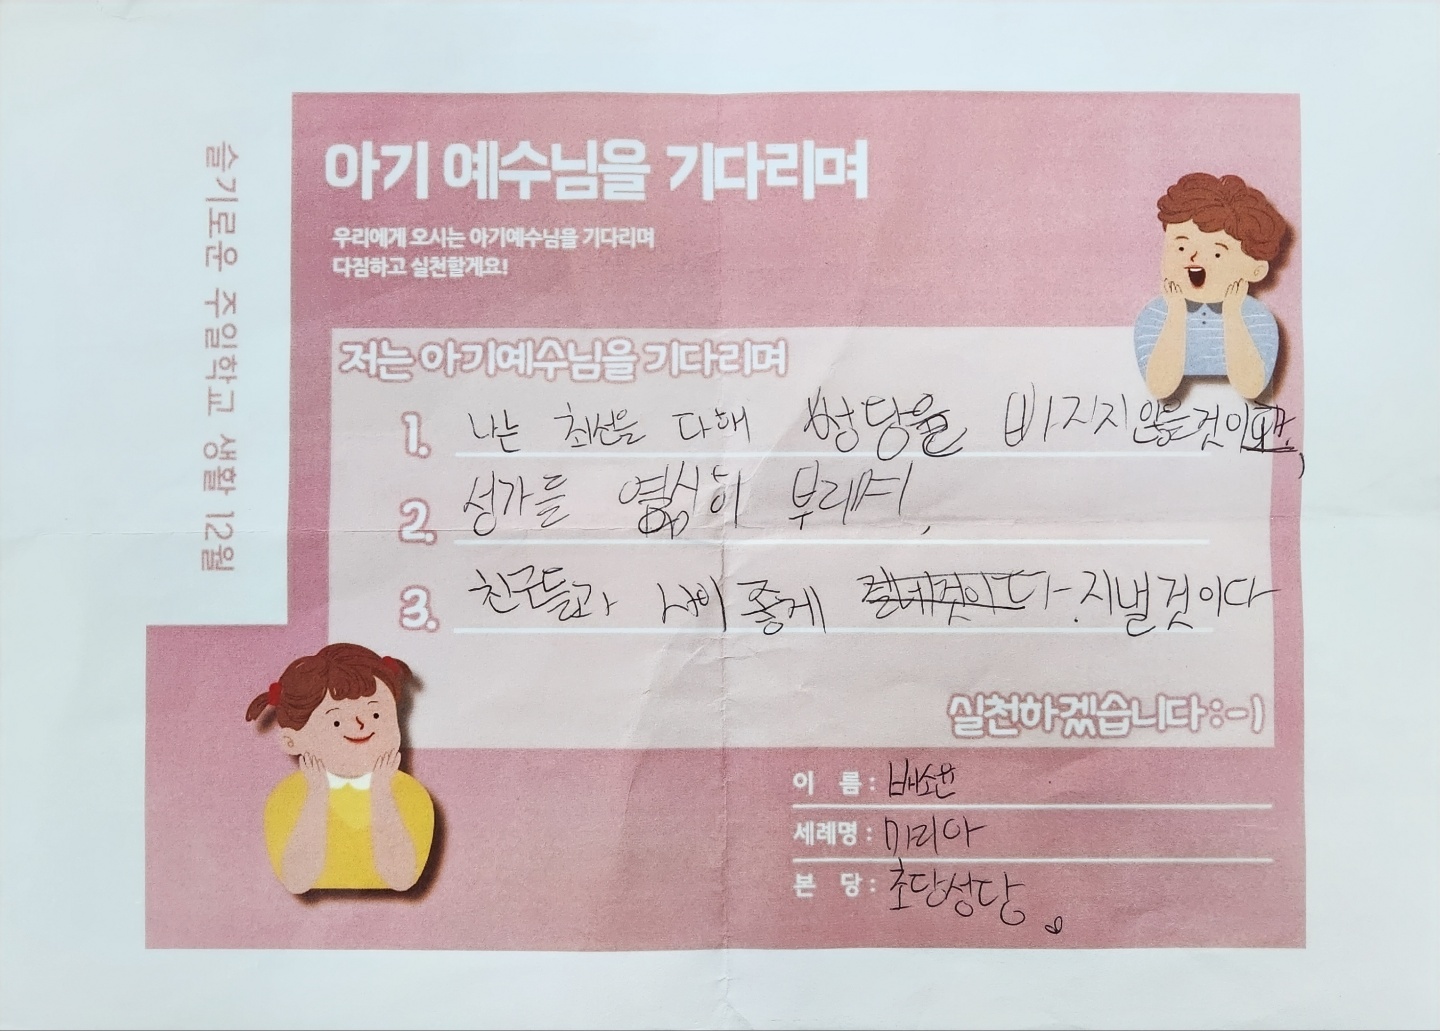 슬기로운 주일학교 생활 12월
아기 예수님을 기다리며
우리에게 오시는 아기예수님을 기다리며
다짐하고 실천할게요!
저는 아기예수님을 기다리며
1. 나는 최선을 다해 성당을 빠지지 않을것이
2. 성가를 열심히 부르며,
3. 친구들과 사이 좋게 지낼것이다
실천하겠습니다:-)
이 름 : 배소윤
세례명 : 마리아
본 당 : 초당성당